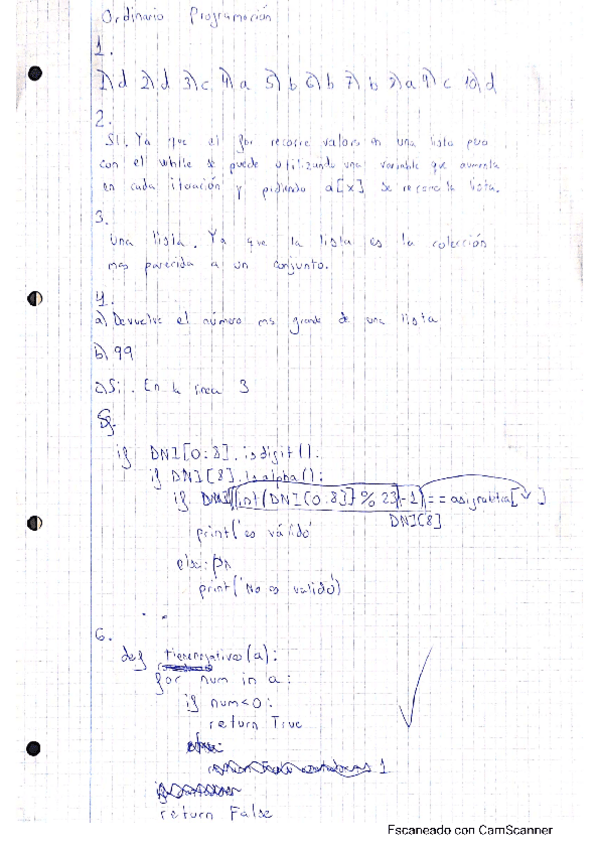 Ordinario Programación
1.
1) d 2) d 3) c 4) a 5) b 6) b 7) b 8) a 9) c 10) d
2.
Sí. Ya que el for recorre valors en una lista pero
con el while se puede utilizando una variable que aumenta
en cada iteración y pidiendo a[x] se recorre la lista.
3.
Una lista. Ya que la lista es la colección
mas parecida a un conjunto.
4.
a) Devuelve el número ms grande de una lista
b) 99
c) Si. En la linea 3
5.
if DNI[0:8].isdigit():
if DNI[8].isalpha():
if (int(DNI[0:8]) % 23)-1) == [ ]
DNI[8]
print('es válido
else:
print('No es valido')
6.
def tienenegativos(a):
for num in a:
if num<0:
return True
return False
Escaneado con CamScanner